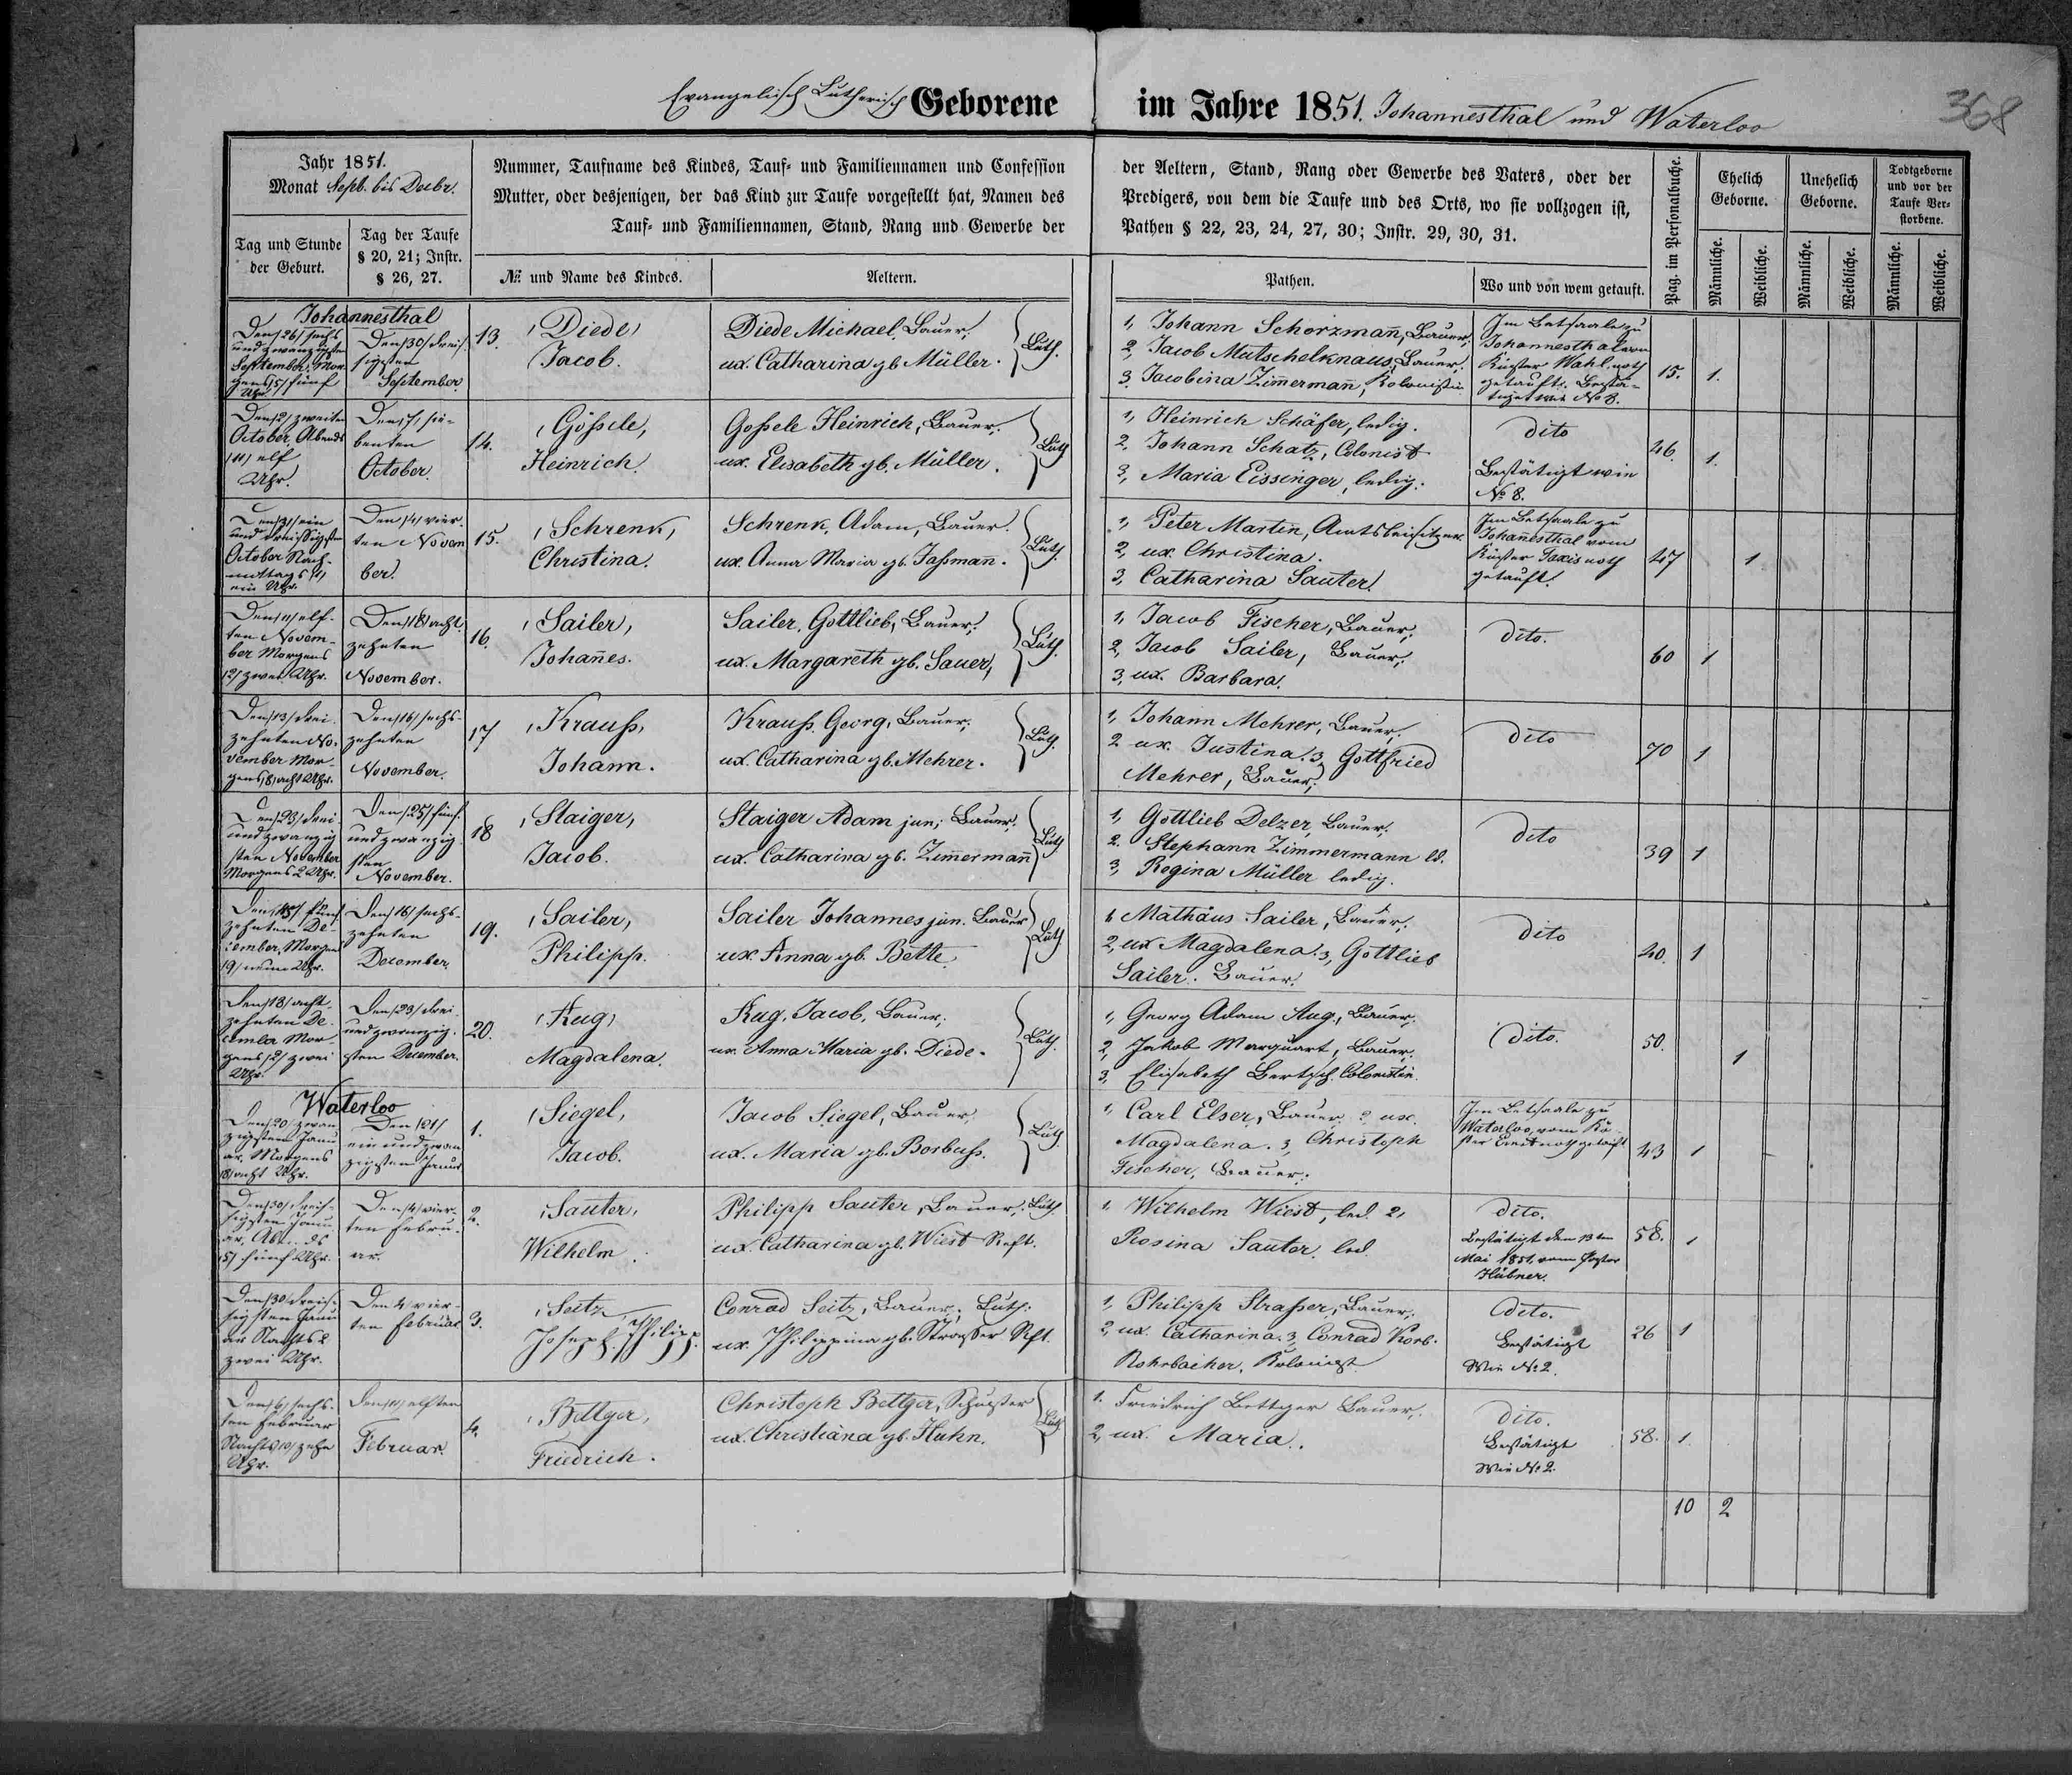 Evangelisch Lutherisch Geborene im Jahre 1851. Johannesthal und Waterloo
368
Jahr 1851.
Monat Sept. bis Decbr.
Tag und Stunde
der Geburt.
Tag der Taufe
§ 20, 21; Instr.
§ 26, 27.
Nummer, Taufname des Kindes, Tauf- und Familiennamen und Confession
Mutter, oder desjenigen, der das Kind zur Taufe vorgestellt hat, Namen des
Tauf- und Familiennamen, Stand, Rang und Gewerbe der
№ und Name des Kindes.
Aeltern.
der Aeltern, Stand, Rang oder Gewerbe des Vaters, oder der
Predigers, von dem die Taufe und des Orts, wo sie vollzogen ist,
Pathen § 22, 23, 24, 27, 30; Instr. 29, 30, 31.
Pathen.
Wo und von wem getauft.
Pag. im Personalbuche.
Ehelich
Geborne.
Unehelich
Geborne.
Todtgeborne
und vor der
Taufe Ver-
storbene.
Männliche.
Weibliche.
Männliche.
Weibliche.
Männliche.
Weibliche.
Johannesthal
Den /26/ sechs
und zwanzigsten
September, Mor-
gens /5/ fünf
Uhr.
Den /30/ dreis-
sigsten
September
13.
Diede,
Jacob.
Diede Michael, Bauer,
ux. Catharina gb. Müller.
Luth.
1, Johann Schorzmañ, Bauer,
2, Jacob Mutschelknaus, Bauer.
3. Jacobina Zim̃ermañ, Kolonistin
Im Betsaale zu
Johannesthal vom
Küster Wahl noth
getauft. Bestä-
tiget wie № 8.
15.
1.
Den /2/ zweiten
October, Abends
/11/ elf
Uhr.
Den /7/ sie-
benten
October.
14.
Gößele,
Heinrich.
Goßele Heinrich, Bauer.
ux. Elisabeth gb. Müller.
Luth
1, Heinrich Schäfer, ledig.
2, Johann Schatz, Colonist
3, Maria Eissinger, ledig.
dito
Bestätigt wie
№ 8.
46.
1.
Den /31/ ein
und dreissigsten
October Nach-
mittags /1/
ein Uhr.
Den /4/ vier-
ten Novem
ber.
15.
Schrenk,
Christina.
Schrenk, Adam, Bauer.
ux. Anna Maria gb. Jaßmañ.
Luth.
1, Peter Martin, Amtsbeisitzer
2, ux. Christina.
3, Catharina Sauter.
Im Betsaale zu
Johañesthal vom
Küster Taxis noth
getauft.
47
1
Den /11/ elf-
ten Novem-
ber Morgens
/2/ zwei Uhr.
Den /18/ acht-
zehnten
November.
16.
Sailer,
Johañes.
Sailer, Gottlieb, Bauer.
ux. Margareth gb. Sauer,
Luth.
1, Jacob Fischer, Bauer,
2, Jacob Sailer, Bauer,
3, ux. Barbara.
dito.
60
1
Den /13/ drei-
zehnten No-
vember Mor-
gens /8/ acht Uhr.
Den /16/ sechs-
zehnten
November.
17
Krauß,
Johann.
Krauß, Georg, Bauer,
ux. Catharina gb. Mehrer.
Luth.
1, Johann Mehrer, Bauer,
2 ux. Justina. 3, Gottfried
Mehrer, Bauer,
dito
70
1
Den /23/ drei
und zwanzig
sten November
Morgens 2 Uhr.
Den /25/ fünf-
und zwanzig
sten
November.
18
Staiger,
Jacob.
Staiger Adam jun; Bauer.
ux. Catharina gb. Zim̃ermañ
Luth
1, Gottlieb Delzer, Bauer.
2. Stephann Zimmermann ld.
3, Regina Müller ledig.
dito
39
1
Den /15/ fünf
zehnten De-
cember, Morgens
/9/ neun Uhr.
Den /16/ sechs-
zehnten
December,
19.
Sailer,
Philipp.
Sailer Johannes jun. Bauer
ux. Anna gb. Bette.
Luth
1, Mathäus Sailer, Bauer.
2, ux Magdalena. 3, Gottlieb
Sailer. Bauer.
dito
40.
1
Den /18/ acht-
zehnten De-
cember Mor-
gens /2/ zwei
Uhr.
Den /23/ drei-
und zwanzig-
sten December.
20.
Aug,
Magdalena.
Aug, Jacob, Bauer,
ux. Anna Maria gb. Diede.
Luth.
1, Georg Adam Aug., Bauer.
2, Jakob Marquart, Bauer.
3, Elisabeth Bertsch. Colonistin.
Dito.
50.
1
Waterloo
Den /20/ zwan-
zigsten Janu-
ar. Morgens
/8/ acht Uhr.
Den /21/
ein und zwan
zigsten Januar
1.
Siegel,
Jacob.
Jacob Siegel, Bauer,
ux. Maria gb. Borbuß.
Luth.
1, Carl Elser, Bauer 2 ux.
Magdalena. 3, Christoph
Fischer, Bauer.
Im Betsaale zu
Waterloo, vom Kü-
ster noth getauft
43
1
Den /30/ dreis-
sigsten Janu-
ar. Abends
/5/ fünf Uhr.
Den /4/ vier-
ten Febru-
ar.
2.
Sauter,
Wilhelm.
Philipp Sauter, Bauer. Luth.
ux. Catharina gb. Wiest Reft.
1, Wilhelm Wiest, led. 2,
Rosina Sauter. led.
dito.
Bestätigt den 13ten
Mai 1851, vom Pastor
Hübner.
58.
1
Den /30/ dreis-
sigsten Janu
ar Nachts 2
zwei Uhr.
Den 4/ vier-
ten Februar
3.
Seitz
Joseph, Philipp.
Conrad Seitz, Bauer; Luth.
ux. Philippina gb. Straßer Rft.
1, Philipp Straßer, Bauer.
2, ux. Catharina. 3, Conrad Korb-
Rohrbacher, Kolonist
dito.
Bestätigt
Wie № 2.
26
1
Den /6/ sechs-
ten Februar
Nachts /10/ zehn
Uhr.
Den /11/ elften
Februar.
4.
Bettger,
Friedrich.
Christoph Bettger, Schuster
ux. Christiana gb. Huhn.
Luth
1. Friedrich Bettger Bauer,
2, ux. Maria.
dito.
Bestätigt
Wie № 2.
58.
1.
10 2